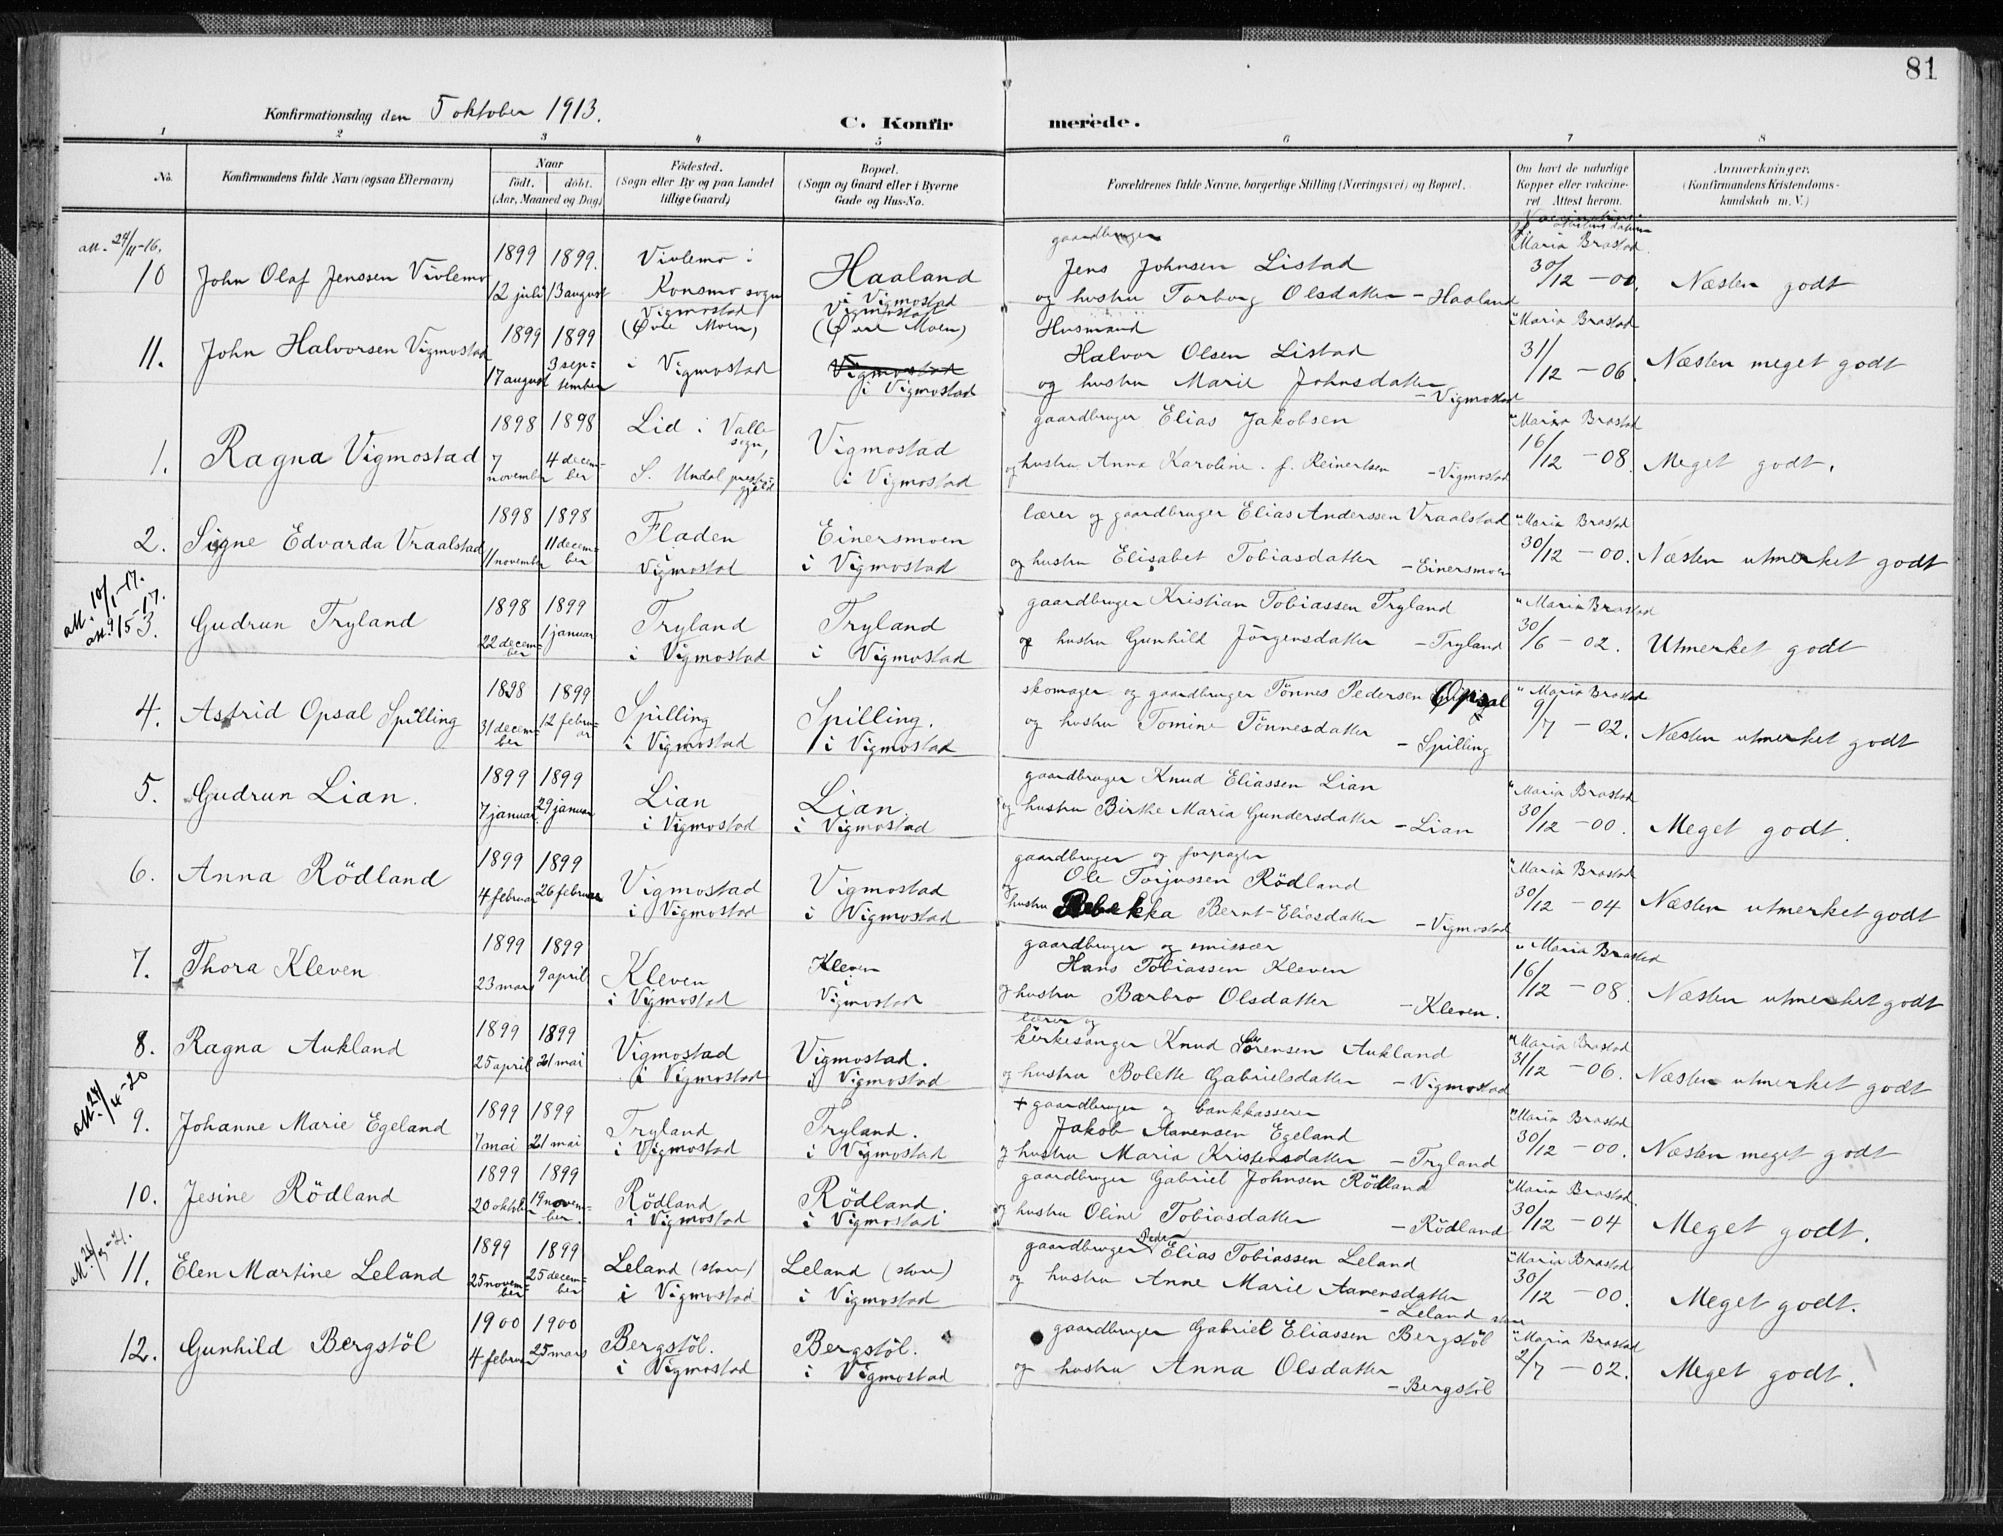 81
Konfirmationsdag den 5 oktober 1913.
C. Konfirmerede.
1 2 3 4 5 6 7 8
No.
Konfirmandens fulde Navn (ogsaa Efternavn)
Naar
födt. döbt.
(Aar, Maaned og Dag)
Födested.
(Sogn eller By og paa Landet
tillige Gaard)
Bopæl.
(Sogn og Gaard eller i Byerne
Gade og Hus-No.
Forældrenes fulde Navne, borgerlige Stilling (Næringsvei) og Bopæl.
Om havt de naturlige
Kopper eller vakcine-
ret. Attest herom.
Anmærkninger.
(Konfirmandens Kristendoms-
kundskab m. V.)
att. 24/11-16.
10
John Olaf Jenssen Vivlemo
1899
12 juli
1899.
13 august
Vivlemo i
Konsmo sogn
Haaland
i Vigmostad
gaardbruger
Jens Johnsen Listad
og hustru Torborg Olsdatter – Haaland
Maria Brastad
30/12 – 00.
Næsten godt
11.
John Halvorsen Vigmostad
1899
17 august
1899
3 sep-
tember
Vigmostad
(Øvre Moen)
i Vigmostad
Vigmostad
(Øvre Moen)
Vigmostad
i Vigmostad
Husmand
Halvor Olsen Listad
og hustru Marie Johnsdatter
– Vigmostad
" Maria Brastad
31/12 – 06.
Næsten meget godt
1.
Ragna Vigmostad
1898
7
november
1898
4 decem-
ber
Lid i Valle
sogn,
S. Undal preste-
gjeld
Vigmostad
i Vigmostad
gaardbruger Elias Jakobsen
og hustru Anna Karoline f. Reinertsen – Vigmostad
" Maria Brastad
16/12 – 08.
Meget godt.
2.
Signe Edvarda Vraalstad
1898
11 november
1898
11 decem-
ber
Fladen
i
Vigmostad
Einersmoen
i Vigmostad
lærer og gaardbruger Elias Anderssen Vraalstad
og hustru Elisabet Tobiasdatter – Einersmoen
" Maria Brastad
30/12 – 00.
Næsten utmerket godt
att. 10/1-17.
att. 9/5-17.
3.
Gudrun Tryland
1898
22 decem-
ber
1899
1 januar
Tryland
i Vigmostad
Tryland
i Vigmostad
gaardbruger Kristian Tobiassen Tryland
og hustru Gunhild Jörgensdatter – Tryland
" Maria Brastad
30/6 – 02.
Utmerket godt
4.
Astrid Opsal Spilling
1898
31 decem-
ber
1899
12 febru-
ar
Spilling
i Vigmostad
Spilling.
i Vigmostad
skomager og gaardbruger Tönnes Pedersen Opsal
og hustru Tomine Tönnesdatter – Spilling
" Maria Brastad
9/7 – 02.
Næsten utmerket godt
5.
Gudrun Lian.
1899
7 januar.
1899
29 januar
Lian
i Vigmostad
Lian
i Vigmostad
gaardbruger Knud Eliassen Lian
og hustru Birthe Maria Gundersdatter – Lian
" Maria Brastad
30/12 – 00.
Meget godt.
6.
Anna Rödland
1899
4 februar
1899
26 februar
Vigmostad
i Vigmostad
Vigmostad
i Vigmostad
gaardbruger og forpagter
Ole Torjussen Rödland
og hustru Rebekka Bernt-Eliasdatter – Vigmostad
" Maria Brastad
30/12 – 04
Næsten utmerket godt
7.
Thora Kleven
1899
23 mars
1899
9 april
Kleven
i Vigmostad
Kleven
i
Vigmostad
gaardbruger og emissær
Hans Tobiassen Kleven
og hustru Barbro Olsdatter – Kleven.
" Maria Brastad
16/12 – 08
Næsten utmerket godt
8.
Ragna Aukland
1899
25 april
1899
21 mai
Vigmostad
i Vigmostad
Vigmostad.
i Vigmostad
lærer og
kirkesanger Knud Sörensen Aukland
og hustru Bolette Gabrielsdatter – Vigmostad
" Maria Brastad
31/12 – 06.
Næsten utmerket godt
att. 24/4-20
9.
Johanne Marie Egeland
1899
7 mai
1899
21 mai
Tryland
i Vigmostad
Tryland.
i Vigmostad
+ gaardbruger og bankkasserer
Jakob Aanensen Egeland
og hustru Maria Kristensdatter – Tryland
" Maria Brastad
30/12 – 00.
Næsten meget godt
10.
Jesine Rödland
1899
20 oktob.
1899
19 novem-
ber.
Rödland
i Vigmostad
Rödland.
i Vigmostad
gaardbruger Gabriel Johnsen Rödland
og hustru Oline Tobiasdatter – Rödland
" Maria Brastad
30/12 – 04
Meget godt.
11.
Elen Martine Leland
1899
25 novem-
ber
1899
25 decem-
ber
Leland (store)
i Vigmostad
Leland (store)
i Vigmostad
gaardbruger Peder Elias Tobiassen Leland
og hustru Anne Marie Aanensdatter
– Leland store
" Maria Brastad
30/12 – 00.
Meget godt.
12.
Gunhild Bergstöl
1900
4 februar
1900
25 mars
Bergstöl.
i Vigmostad
Bergstöl.
i Vigmostad
gaardbruger Gabriel Eliassen Bergstöl
og hustru Anna Olsdatter
– Bergstöl
" Maria Brastad
2/7 – 02.
Meget godt.